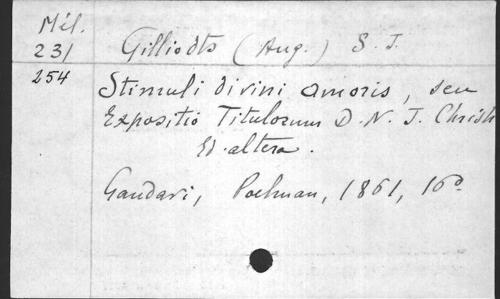 Mél.
231 Gilliodts (Aug.) S. J.
254 Stimuli divini amoris, seu
Expositio Titulorum D. N. J. Christi
Ed. altera.
Gandavi, Poelman, 1861, 16º